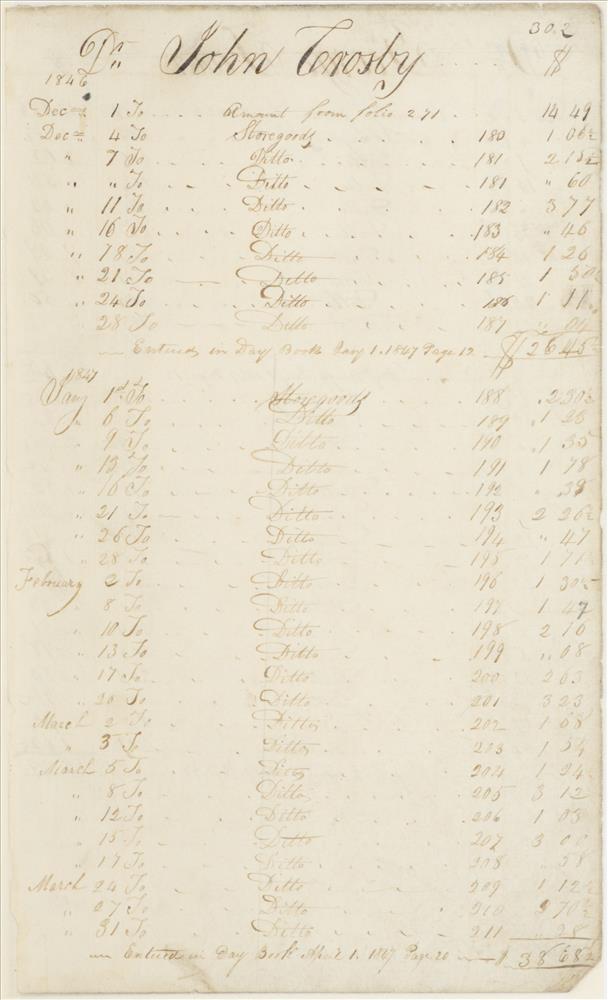 302
Dr John Crosby $
1846
Dec 1 To Amount from folio 271 14 49
Dec 4 To Storegoods 180 1 06½
" 7 To Ditto 181 2 15½
" " To Ditto 181 " 60
" 11 To Ditto 182 3 77
" 16 To Ditto 183 " 46
" 18 To Ditto 184 1 26
" 21 To Ditto 185 1 50½
" 24 To Ditto 186 1 11
28 To Ditto 187 " 04
Entered in Day Book Jany 1. 1847 Page 12 $ 26 45½
1847
Jany 1st To Storegoods 188 2 30½
" 6 To Ditto 189 1 28
" 9 To Ditto 190 1 35
" 13 To Ditto 191 1 78
" 16 To Ditto 192 " 38
" 21 To Ditto 193 2 26½
" 26 To Ditto 194 " 47
" 28 To Ditto 195 1 71
February 2 To Ditto 196 1 30½
" 8 To Ditto 197 1 47
" 10 To Ditto 198 2 10
" 13 To Ditto 199 " 08
" 17 To Ditto 200 2 63
" 20 To Ditto 201 3 23
March 2 To Ditto 202 1 58
" 3 To Ditto 203 1 54
March 5 To Ditto 204 1 24
" 8 To Ditto 205 3 12
" 12 To Ditto 206 1 03
" 15 To Ditto 207 3 00
" 17 To Ditto 208 " 58
March 24 To Ditto 209 1 12½
" 27 To Ditto 210 2 70½
" 31 To Ditto 211 " 28
Entered in Day Book April 1. 1847 Page 20 $ 38 68½